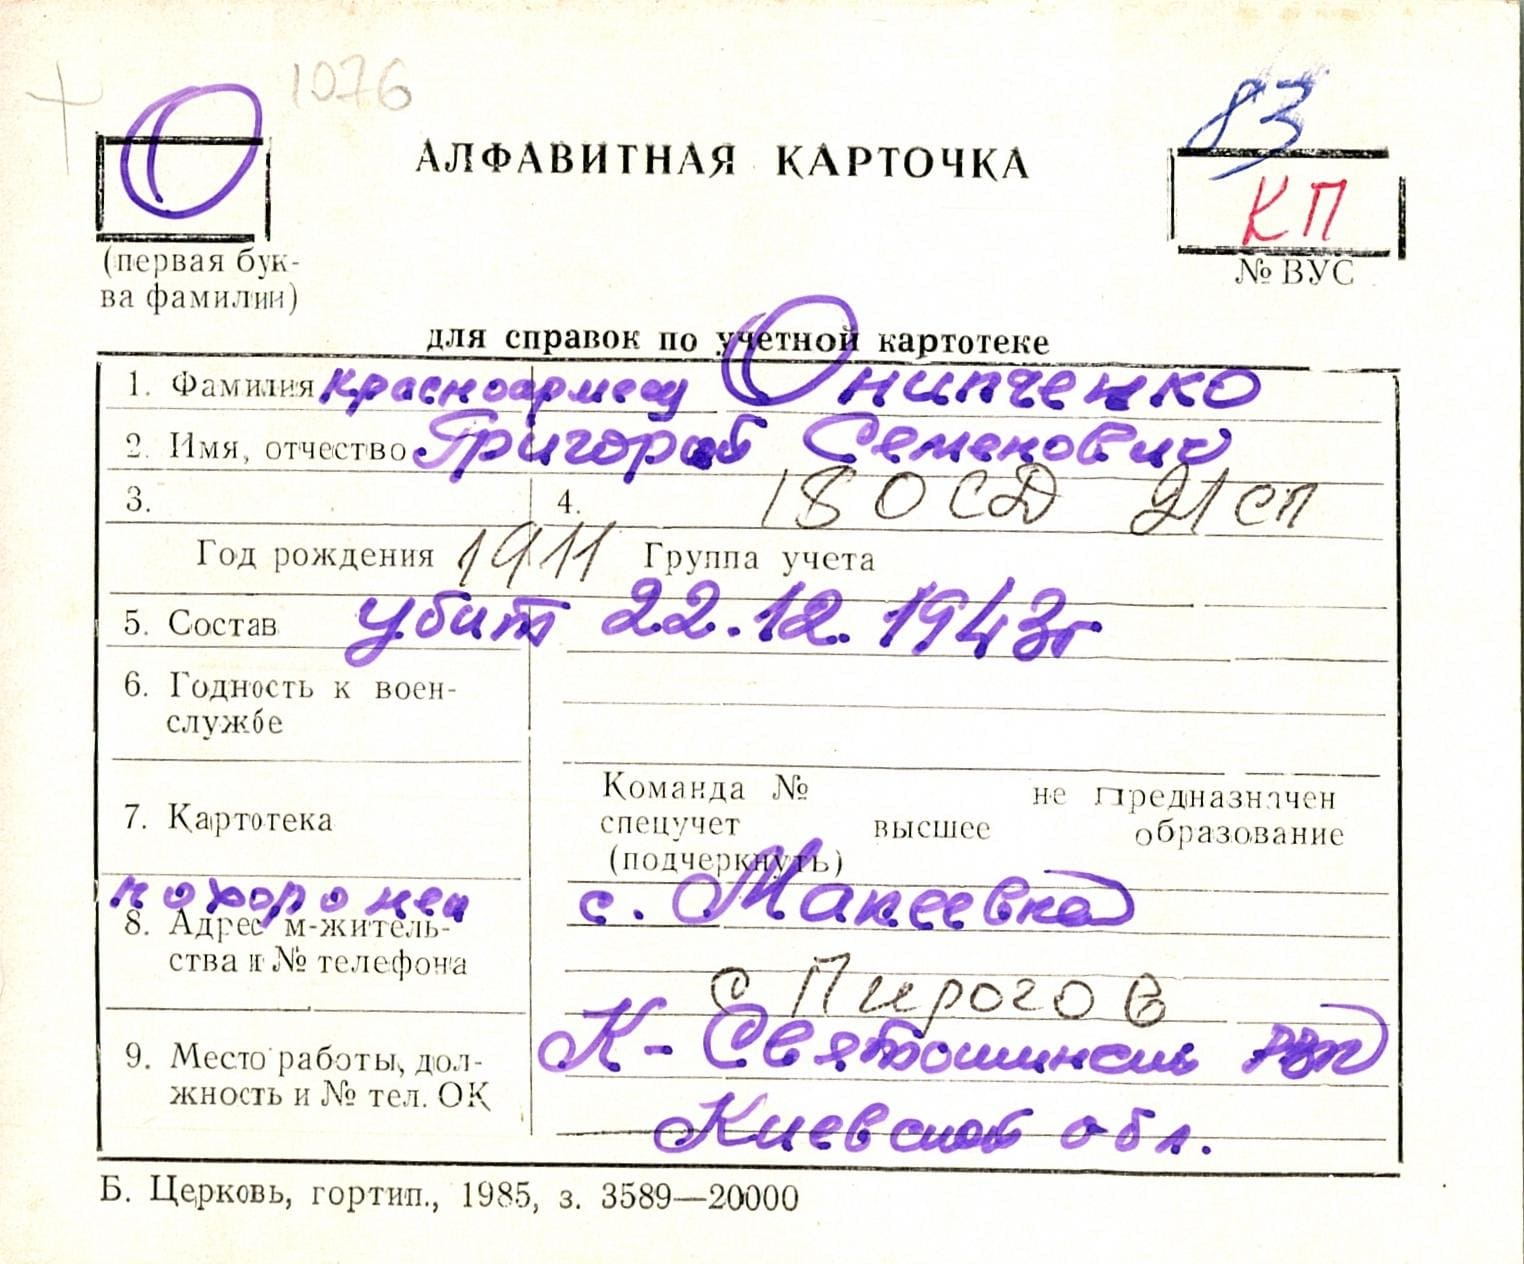 1076
О
83
АЛФАВИТНАЯ КАРТОЧКА
КП
(первая бук-
ва фамилии)
№ ВУС
для справок по учетной картотеке
1. Фамилия красноармеец Онипченко
2. Имя, отчество Григорий Семенович
3. 4. 180 СД 21 сп
Год рождения 1911 Группа учета
5. Состав убит 22.12.1943г
6. Годность к воен-
службе
Команда № не предназначен
7. Картотека
спецучет высшее образование
(подчеркнуть)
похоронен с. Макеевка
8. Адрес м-житель-
ства и № телефона
с Пирогов
К-Святошинский
9. Место работы, дол-
жность и № тел. ОК
Киевской обл.
Б. Церковь, гортип., 1985, з. 3589—20000